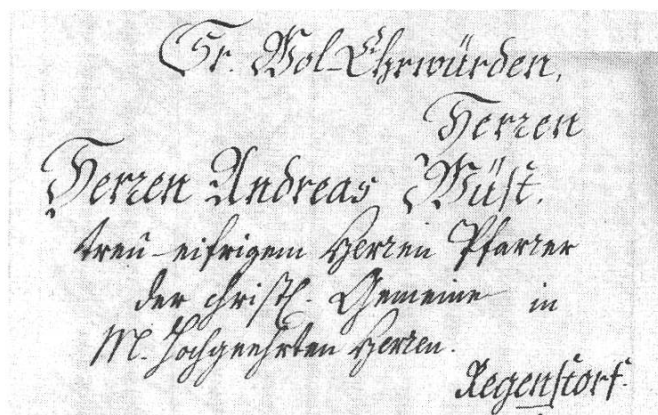 Sr. Wol-Ehrwürden,
Herren
Herren Andreas Wüst.
treü-eifrigem Herren Pfarrer
der christl. Gemeine in
M. Hochgeehrten Herren.
Regenstorf.